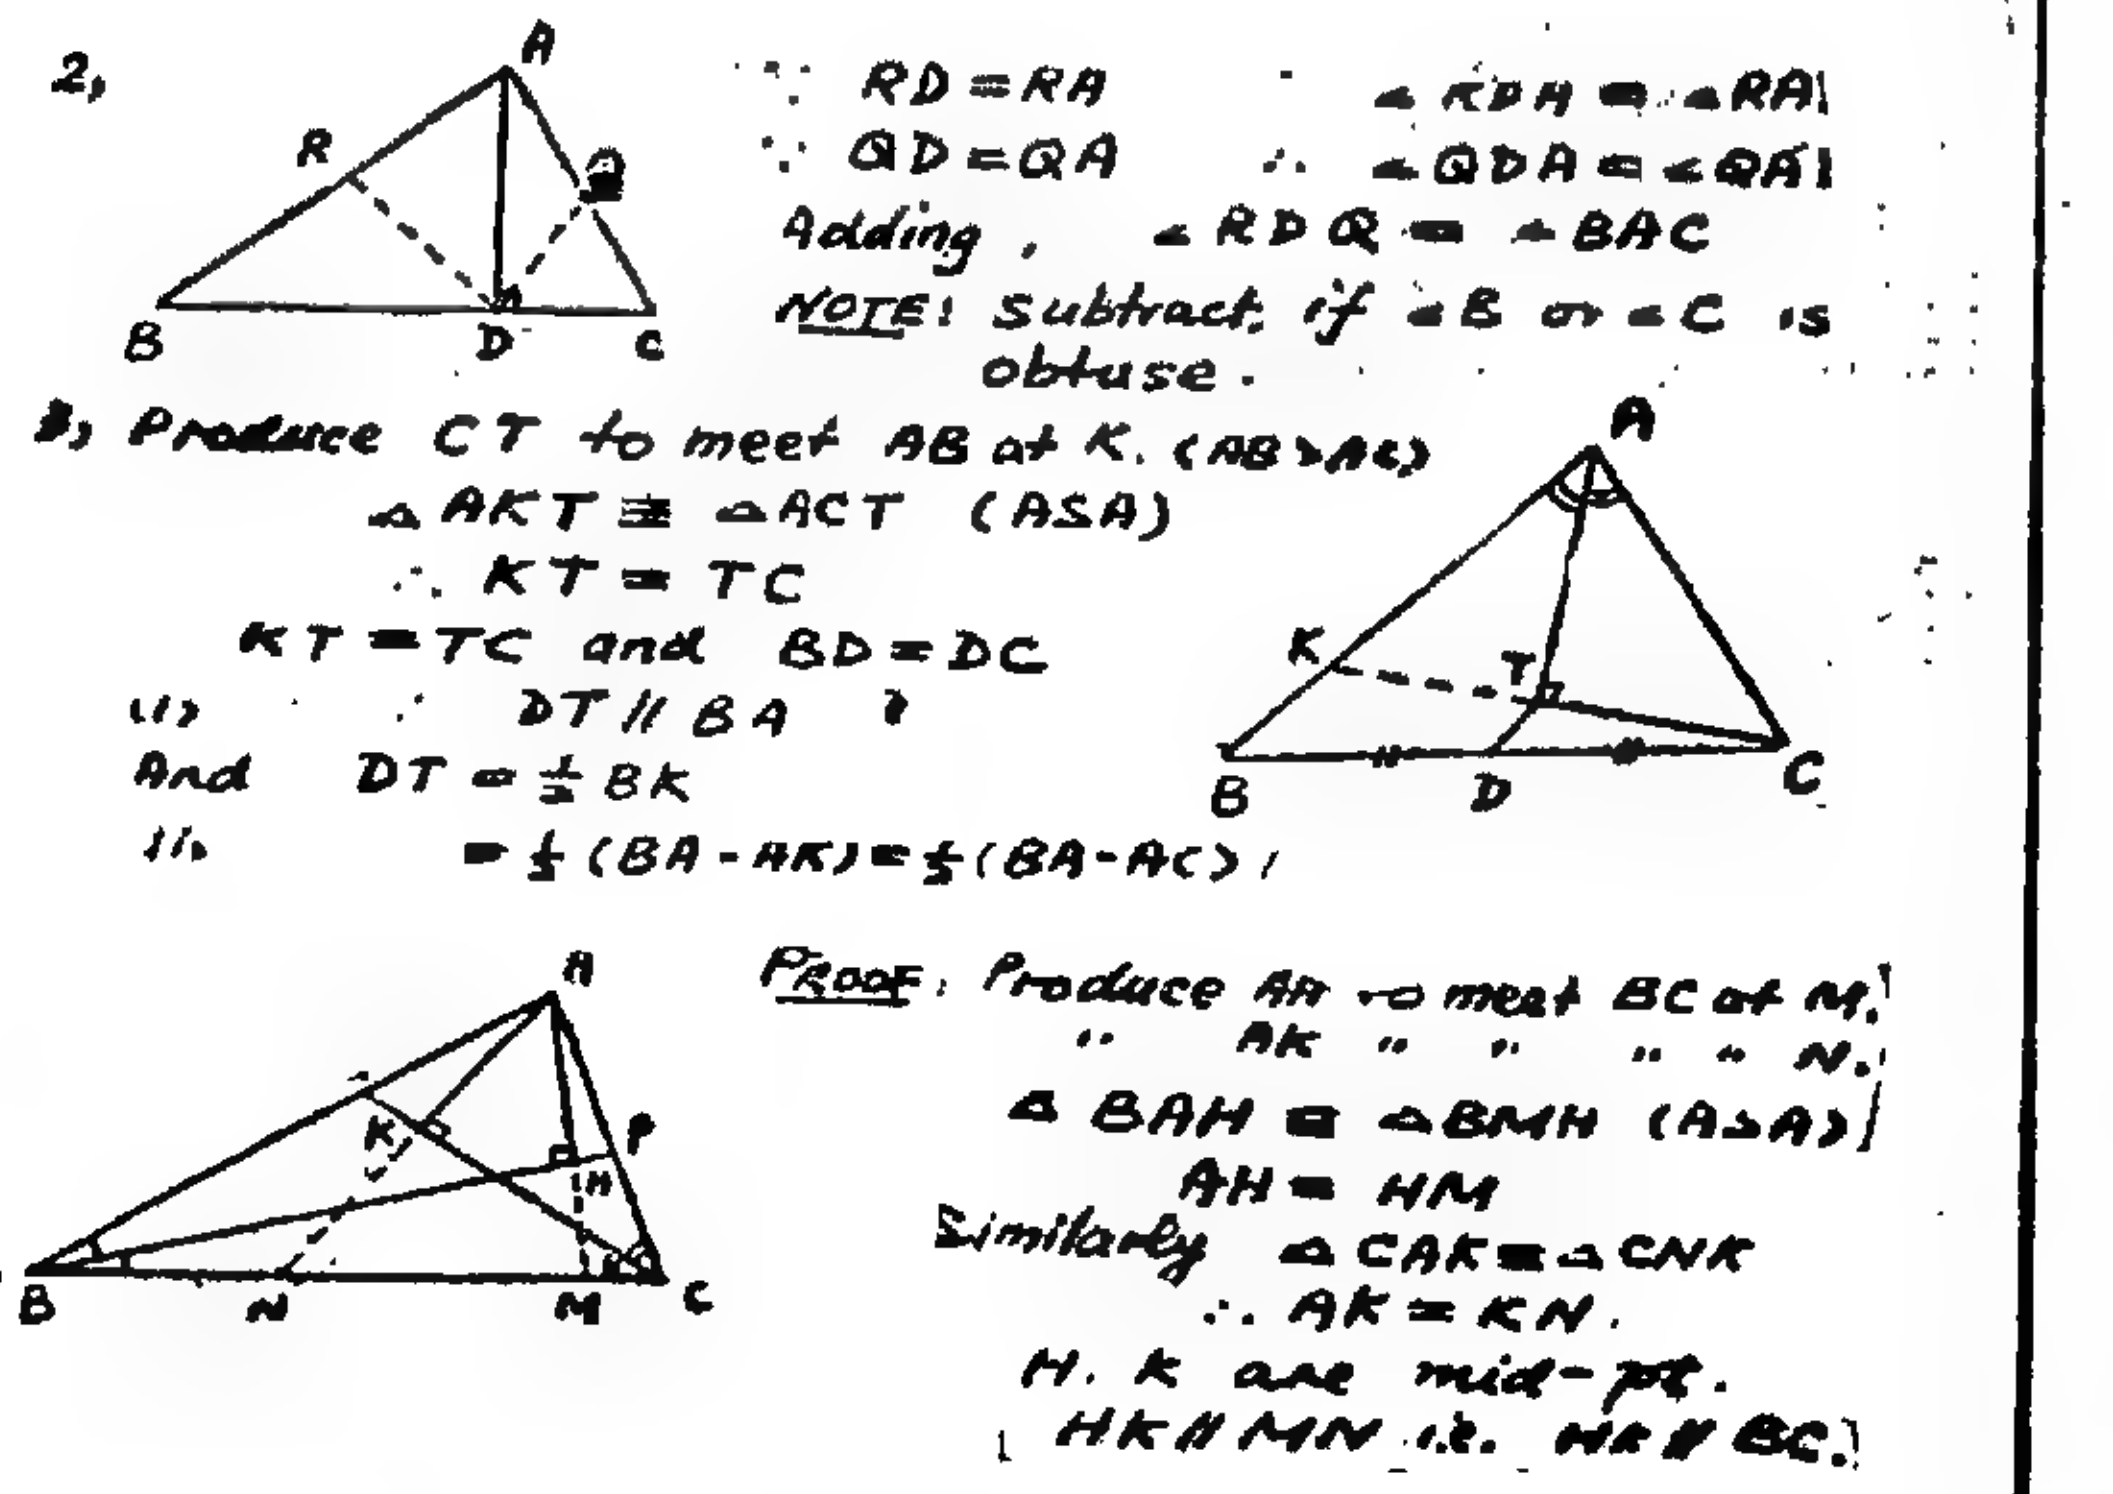 2,
A
R
Q
B
D
C
∵ RD = RA
∠RDA = ∠RA
∵ QD = QA ∴ ∠QDA = ∠QA
Adding, ∠RDQ = ∠BAC
NOTE! Subtract, if ∠B or ∠C is
obtuse.
3, Produce CT to meet AB at K. (AB>AC)
△AKT ≡ △ACT (ASA)
∴ KT = TC
KT = TC and BD = DC
(i) ∴ DT // BA
And DT = ½ BK
ii, = ½ (BA - AK) = ½ (BA - AC)
A
K
T
B
D
C
A
K
P
H
B
N
M
C
PROOF: Produce AH to meet BC at M.
" AK " " " " N.
△ BAH ≡ △BMH (ASA)
AH = HM
Similarly △ CAK ≡ △ CNK
∴ AK = KN.
H. K are mid-pt.
HK // MN i.e. HK // BC.